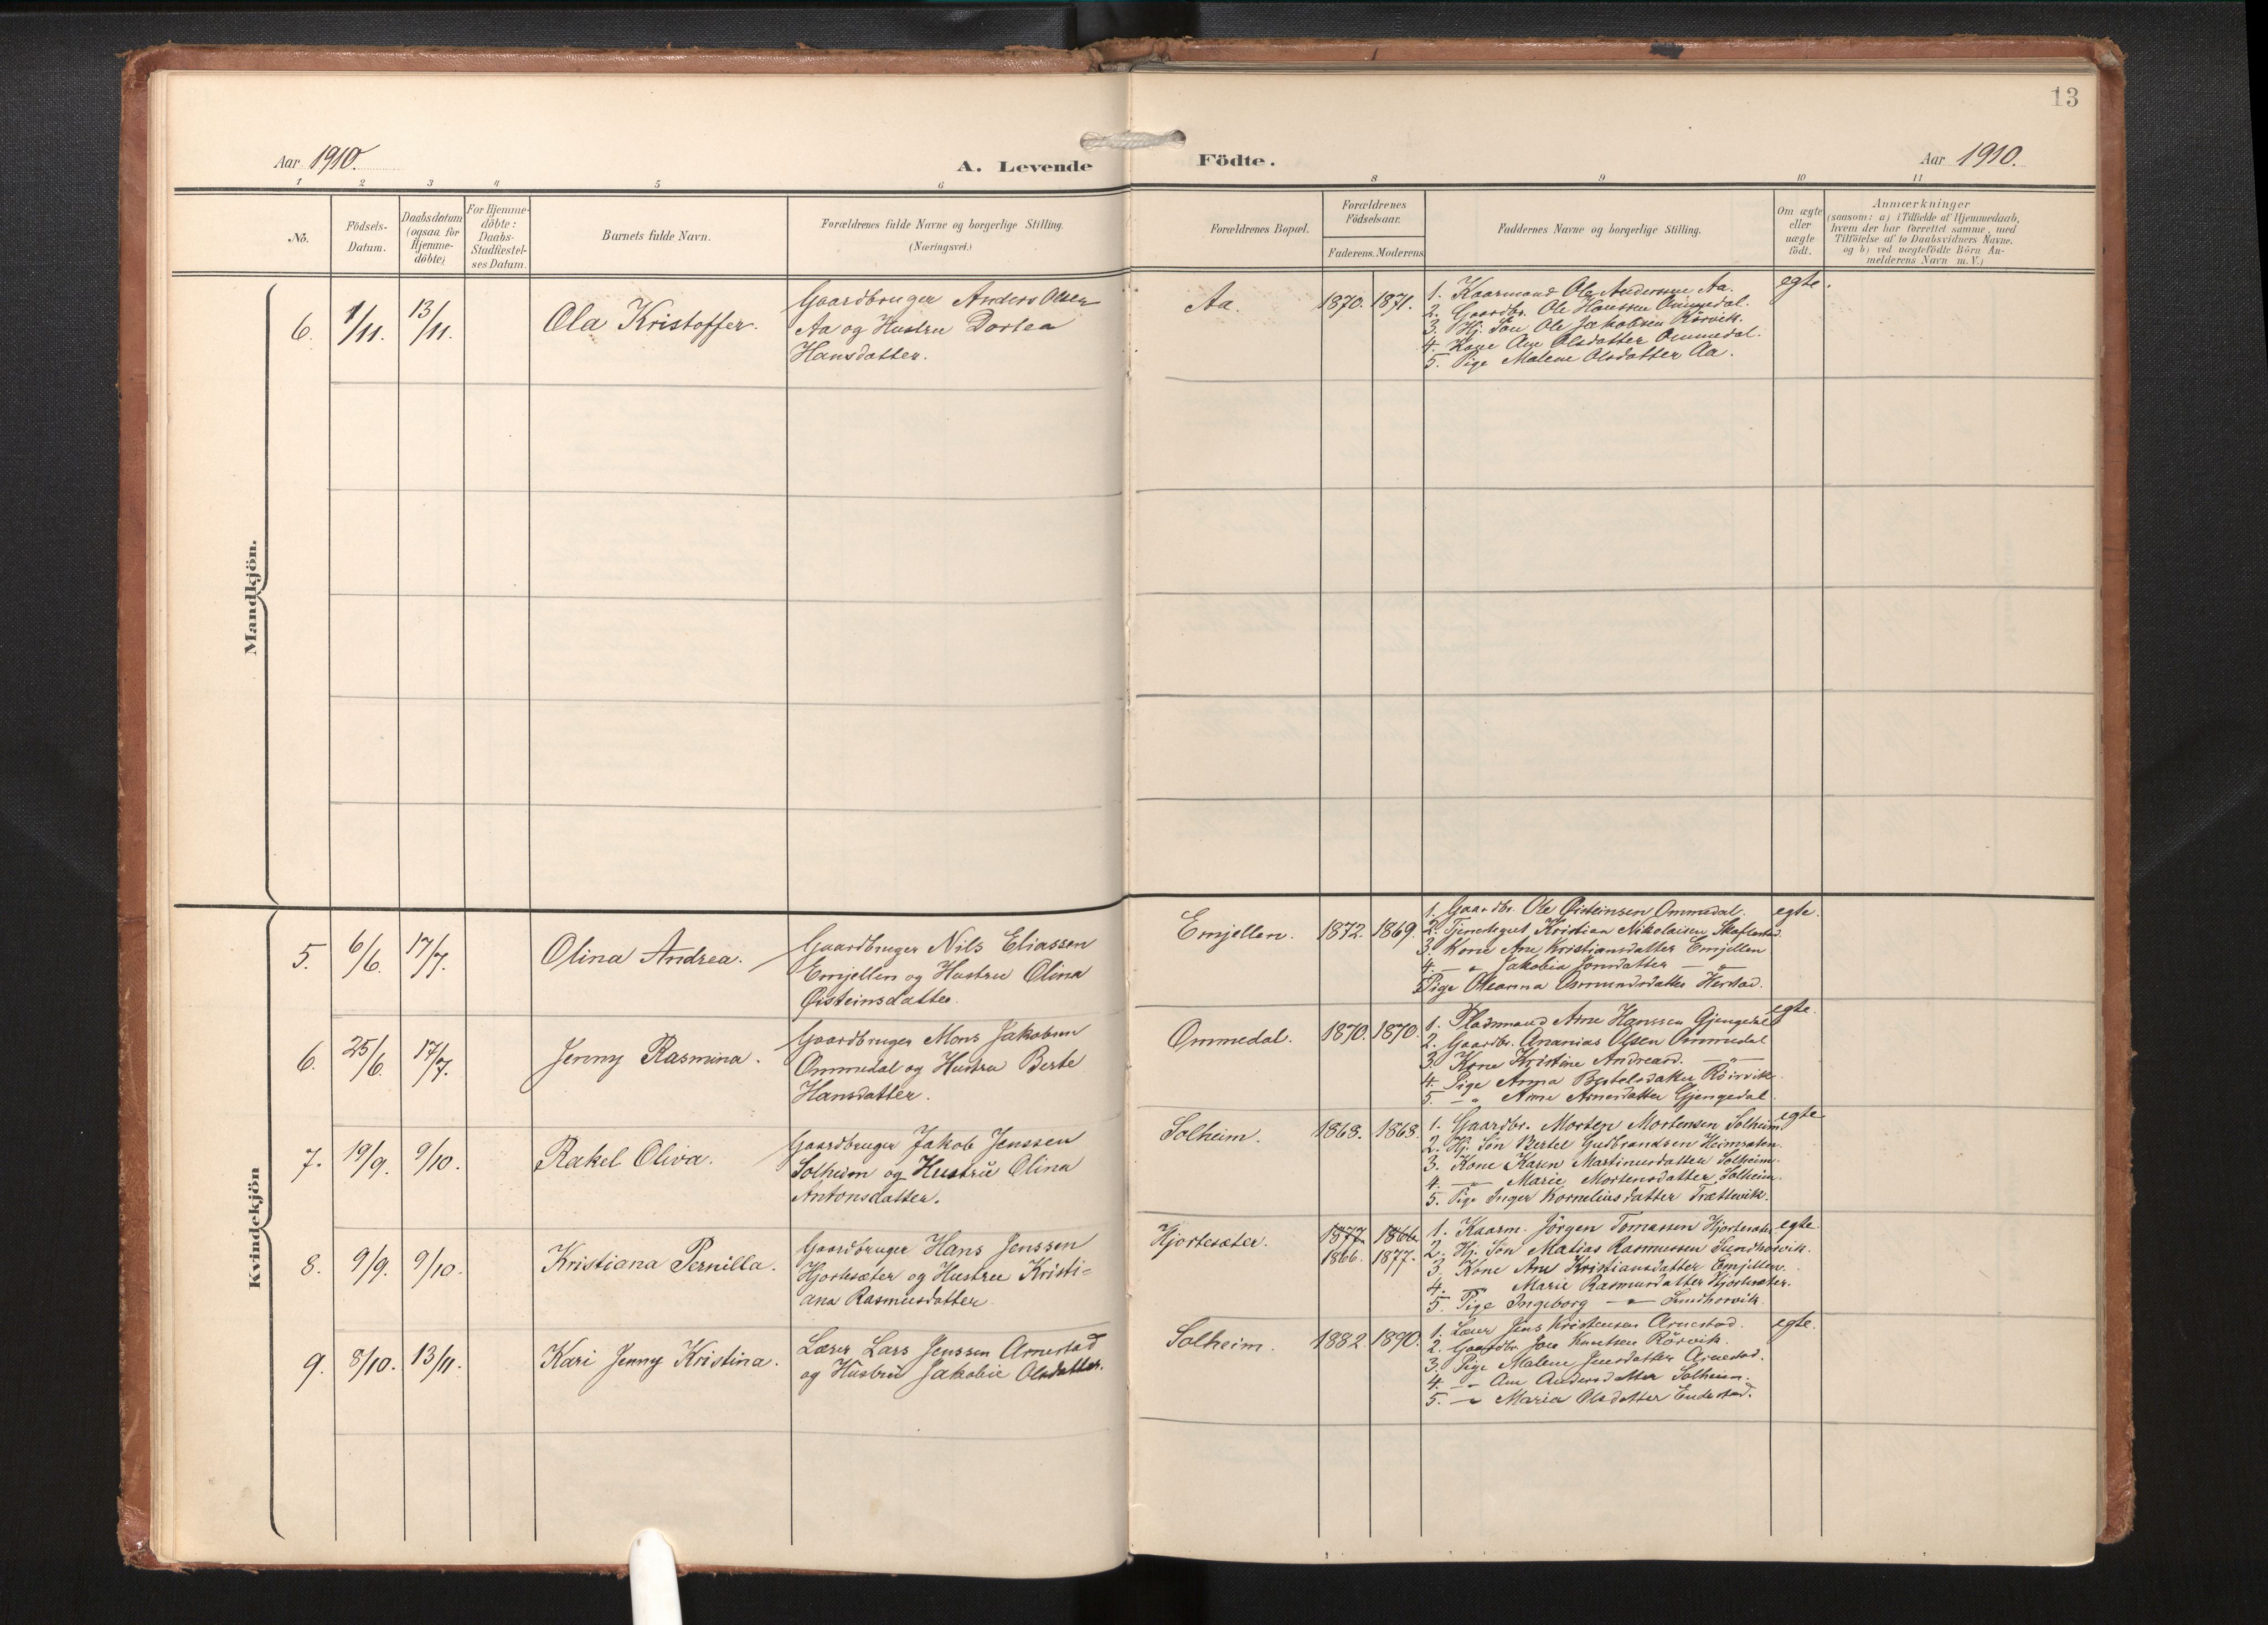 13
Aar 1910.
A. Levende Födte.
Aar 1910.
1 2 3 4 5 6 8 9 10 11
No.
Födsels-
Datum.
Daabsdatum
(ogsaa for
Hjemme-
döbte)
For Hjemme-
döbte:
Daabs-
Stadfæstel-
ses Datum.
Barnets fulde Navn.
Forældrenes fulde Navne og borgerlige Stilling.
(Næringsvei.)
Forældrenes Bopæl.
Forældrenes
Födselsaar.
Faderens. Moderens.
Faddernes Navne og borgerlige Stilling.
Om ægte
eller
uægte
födt.
Anmærkninger
(saasom: a) i Tilfælde af Hjemmedaab,
hvem der har forrettet samme, med
Tilföielse af to Daabsvidners Navne.
og b) ved uægtefödte Börn An-
melderens Navn m. V.)
Mandkjön.
6. 1/11. 13/11. Ola Kristoffer.
Gaardbruger Anders Olsen
Aa og Hustru Dortea
Hansdatter.
Aa. 1870. 1871.
1. Kaarmand Ole Anderssen Aa.
2. Gaardbr. Ole Hanssen Ommedal.
3. Hj. Søn Ole Jakobsen Rörvik.
4. Kone Ane Olsdatter Ommedal.
5. Pige Malene Olsdatter Aa.
egte.
Kvindekjön
5. 6/6. 17/7. Olina Andrea.
Gaardbruger Nils Eliassen
Emjellen og Hustru Olina
Øisteinsdatter.
Emjellen. 1872. 1869.
1. Gaardbr. Ole Øisteinsen Ommedal.
2. Tjenestegut Kristian Nikolaisen
3. Kone Ane Kristiansdatter Emjellen
4. — " Jakobia Jonsdatter — " —
5. Pige Oleanna Osmundsdatter
egte.
6. 25/6. 17/7. Jenny Rasmina.
Gaardbruger Mons Jakobsen
Ommedal og Hustru Berte
Hansdatter.
Ommedal. 1870. 1870.
1. Pladsmand Arne Hanssen Gjengedal
2. Gaardbr. Ananias Olsen Ommedal
3. Kone Kristine Andreasd. — " —
4. Pige Anna Bertelsdatter Röirvik.
5. — " Anne Arnesdatter Gjengedal
egte.
7. 19/9. 9/10. Rakel Oliva.
Gaardbruger Jakob Jenssen
Solheim og Hustru Olina
Antonsdatter.
Solheim. 1868. 1868.
1. Gaardbr. Morten Mortensen Solheim
2. Hj. Søn Bertel Gudbrandsen Heimsæten.
3. Kone Karen Martinusdatter Solheim.
4. — " Marie Mortensdatter Solheim.
5. Pige Inger Korneliusdatter Trættevik.
egte
8. 9/9. 9/10. Kristiana Pernilla.
Gaardbruger Hans Jenssen
Hjortesæter og Hustru Kristi-
ana Rasmusdatter
Hjortesæter. 1877. 1866.
1866. 1877.
1. Kaarm. Jörgen Tomassen Hjortesæter
2. Hj. Søn Matias Rasmussen Sundhorvik.
3. Kone Ane Kristiansdatter Emjellen.
4. " Marie Rasmusdatter Hjortesæter.
5. Pige Ingeborg — " — Sundhorvik
egte.
9. 8/10. 13/11. Kari Jenny Kristina.
Lærer Lars Jenssen Arnestad
og Hustru Jakobie Olsdatter.
Solheim. 1882. 1890.
1. Lærer Jens Kristensen Arnestad.
2. Gaardbr. Jon Knutsen Rörvik.
3. Pige Malene Jensdatter Arnestad.
4. — " Ane Andersdatter Solheim.
5. — " Maria Olsdatter Endestad.
egte.